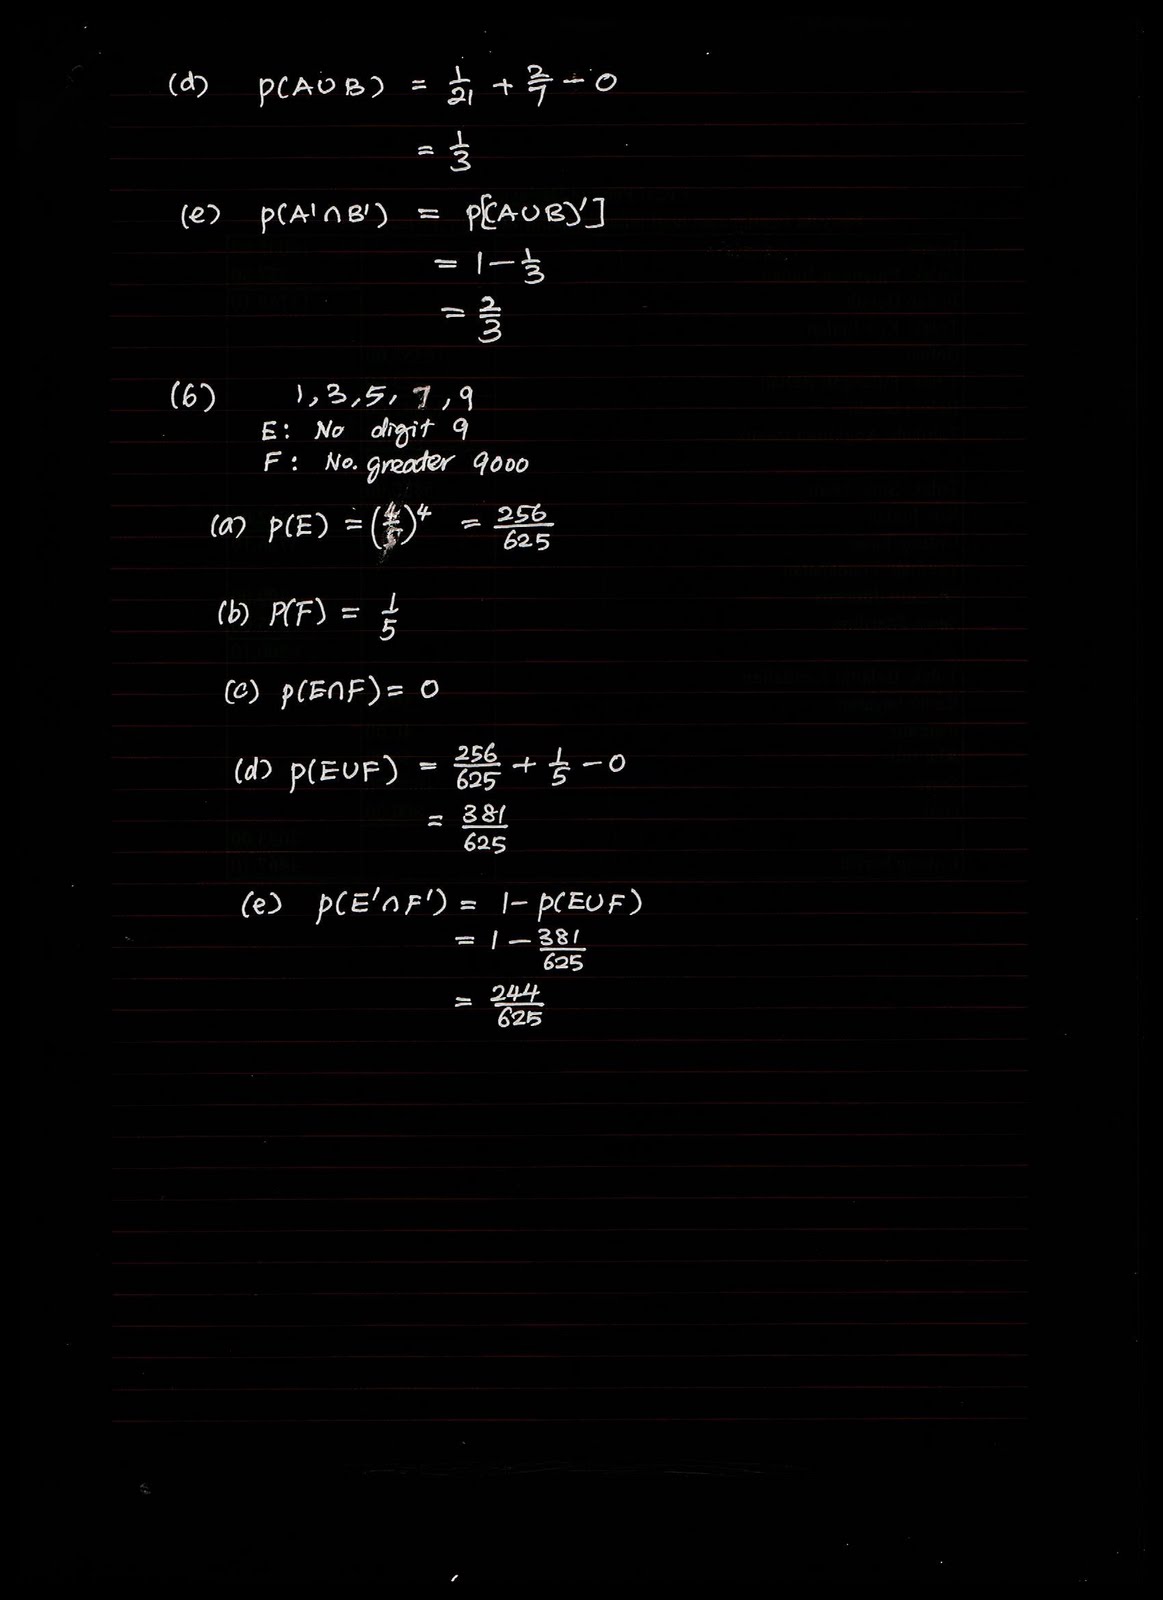 (d) P(A∪B) = 1/21 + 2/7 - 0
= 1/3
(e) P(A'∩B') = P[(A∪B)']
= 1 - 1/3
= 2/3
(6) 1, 3, 5, 7, 9
E: No digit 9
F: No. greater 9000
(a) P(E) = (4/5)^4 = 256/625
(b) P(F) = 1/5
(c) P(E∩F) = 0
(d) P(E∪F) = 256/625 + 1/5 - 0
= 381/625
(e) P(E'∩F') = 1 - P(E∪F)
= 1 - 381/625
= 244/625